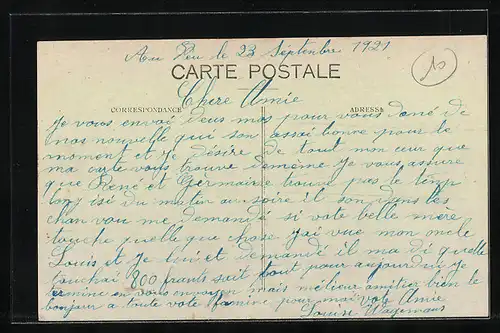 Au Peu le 23 Septenbre 1921
CARTE POSTALE
10
Chere Amie
CORRESPONDANCE
ADRESSE
Je vous envoi deus mos pour vous doné de
mos nouvelle qui son assai bonne pour le
moment et Je désire de tout mon cuer que
ma carte vous trouve demème Je vous assure
que René et Germainne trouve pas le temp
lon isi du matin au soire il son dans les
chan vou me demandé si vote belle mère
touche quelque chose j'ai vue mon oncle
Louis et Je lui et demandé il ma di quelle
touchai 800 frants sait tout pour aujourdui Je
termine en vous envoyen mais mélieur amitier bien le
bonjour a toute vote famine pour moi vote Amie
Louise Wagemans